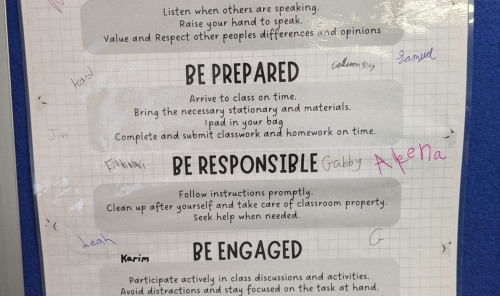 Listen when others are speaking.
Raise your hand to speak.
Value and Respect other peoples differences and opinions
Samuel
BE PREPARED
Arrive to class on time.
Bring the necessary stationary and materials.
Ipad in your bag
Complete and submit classwork and homework on time.
Jin
BE RESPONSIBLE Gabby
Follow instructions promptly.
Clean up after yourself and take care of classroom property.
Seek help when needed.
Leah
G
Karim
BE ENGAGED
Participate actively in class discussions and activities.
Avoid distractions and stay focused on the task at hand.